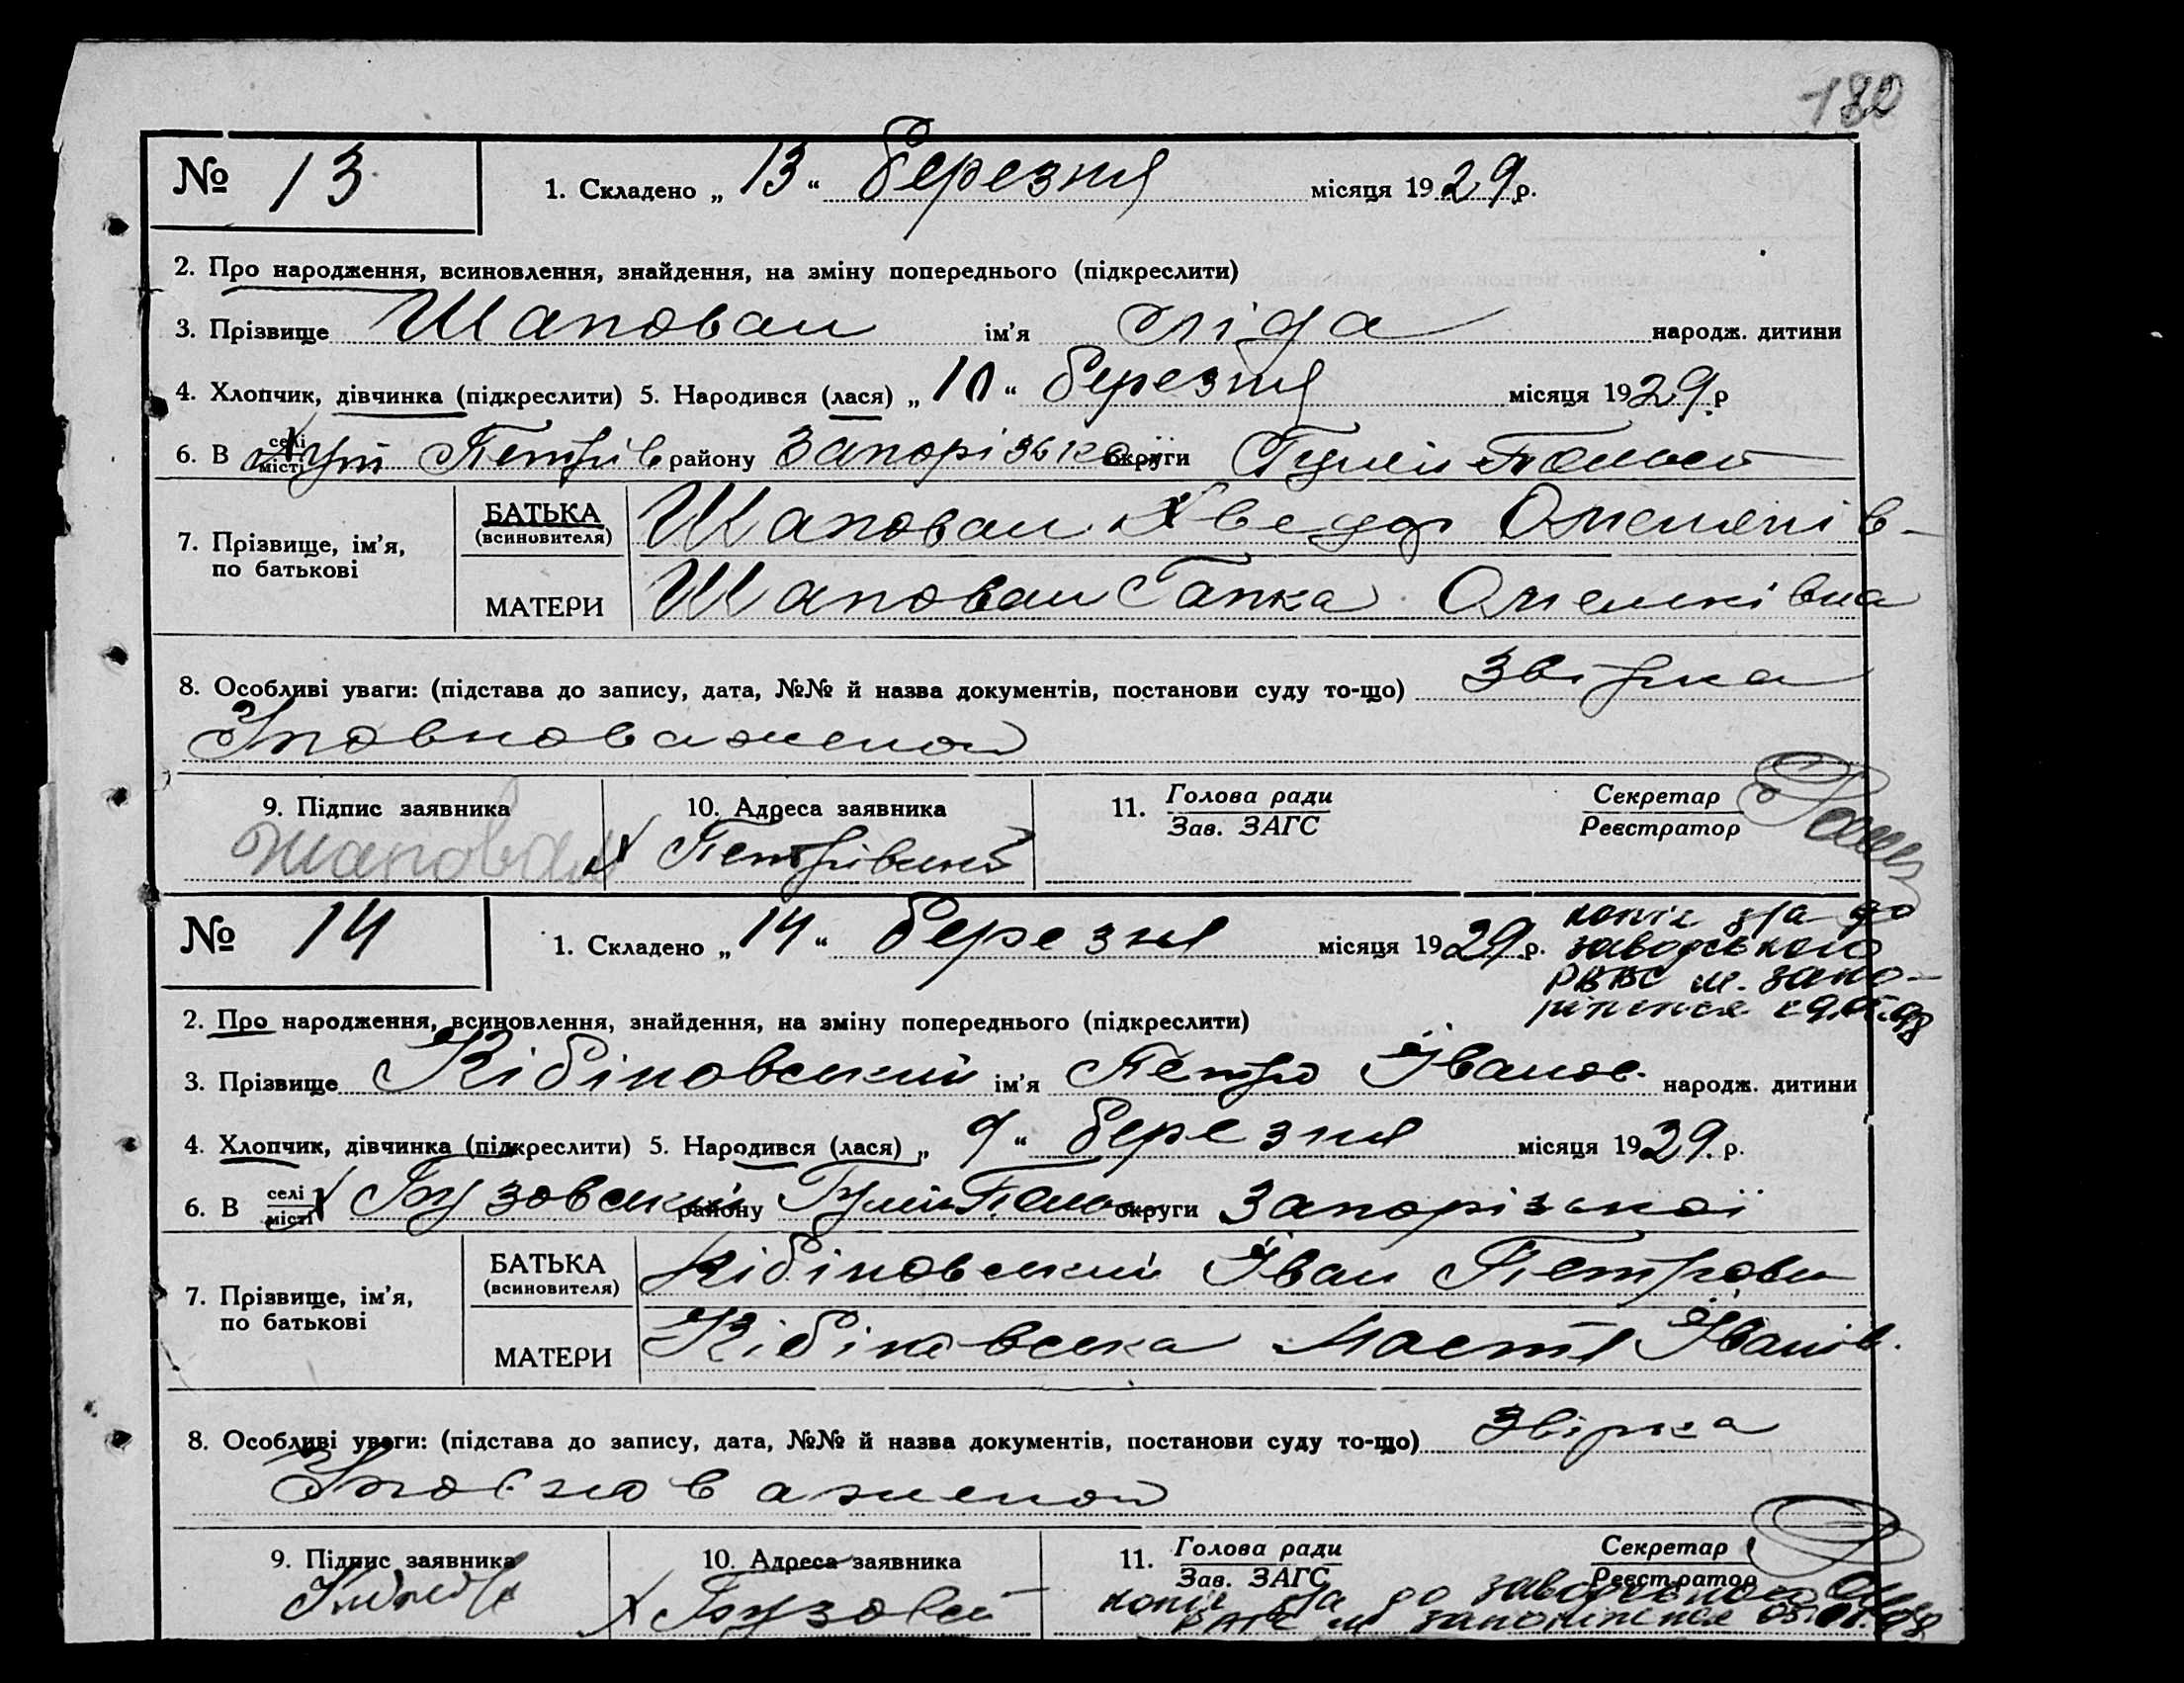 180
№ 13 1. Складено „ 13 “ березня місяця 1929 р.
2. Про народження, всиновлення, знайдення, на зміну попереднього (підкреслити)
3. Прізвище Шаповал ім’я Ліда народж. дитини
4. Хлопчик, дівчинка (підкреслити) 5. Народився (лася) „ 10 “ березня місяця 1929 р
6. В селі місті хут Петрів району Запорізької округи Гуляй-Польск
7. Прізвище, ім’я, по батькові
БАТЬКА (всиновителя) Шаповал Хведор Омелянів-
МАТЕРИ Шаповал Гапка Омелянівна
8. Особливі уваги: (підстава до запису, дата, №№ й назва документів, постанови суду то-що) Звірка
Уповноваженой
9. Підпис заявника 10. Адреса заявника 11. Голова ради Секретар
Зав. ЗАГС Реєстратор
Шаповал х Петрівский
№ 14 1. Складено „ 14 “ березня місяця 1929 р.
копія до
заводського
м. Запо-
ріжжя
2. Про народження, всиновлення, знайдення, на зміну попереднього (підкреслити)
3. Прізвище Кібіновський ім’я Петро Іванов. народж. дитини
4. Хлопчик, дівчинка (підкреслити) 5. Народився (лася) „ 9 “ березня місяця 1929. р.
6. В селі місті х району Гуляй-Поль округи Запорізької
7. Прізвище, ім’я, по батькові
БАТЬКА (всиновителя) Кібіновский Іван Петрови
МАТЕРИ Кібіновська Настя Іванів.
8. Особливі уваги: (підстава до запису, дата, №№ й назва документів, постанови суду то-що) Звірка
Уповноваженой
9. Підпис заявника 10. Адреса заявника 11. Голова ради Секретар
Зав. ЗАГС Реєстратор
х
копія до заводського
м Запоріжжя